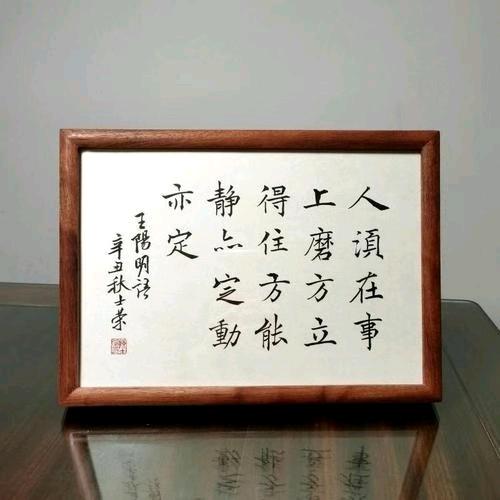 人須在事
上磨方立
得住方能
静亦定動
亦定
王陽明語
辛丑秋士荣